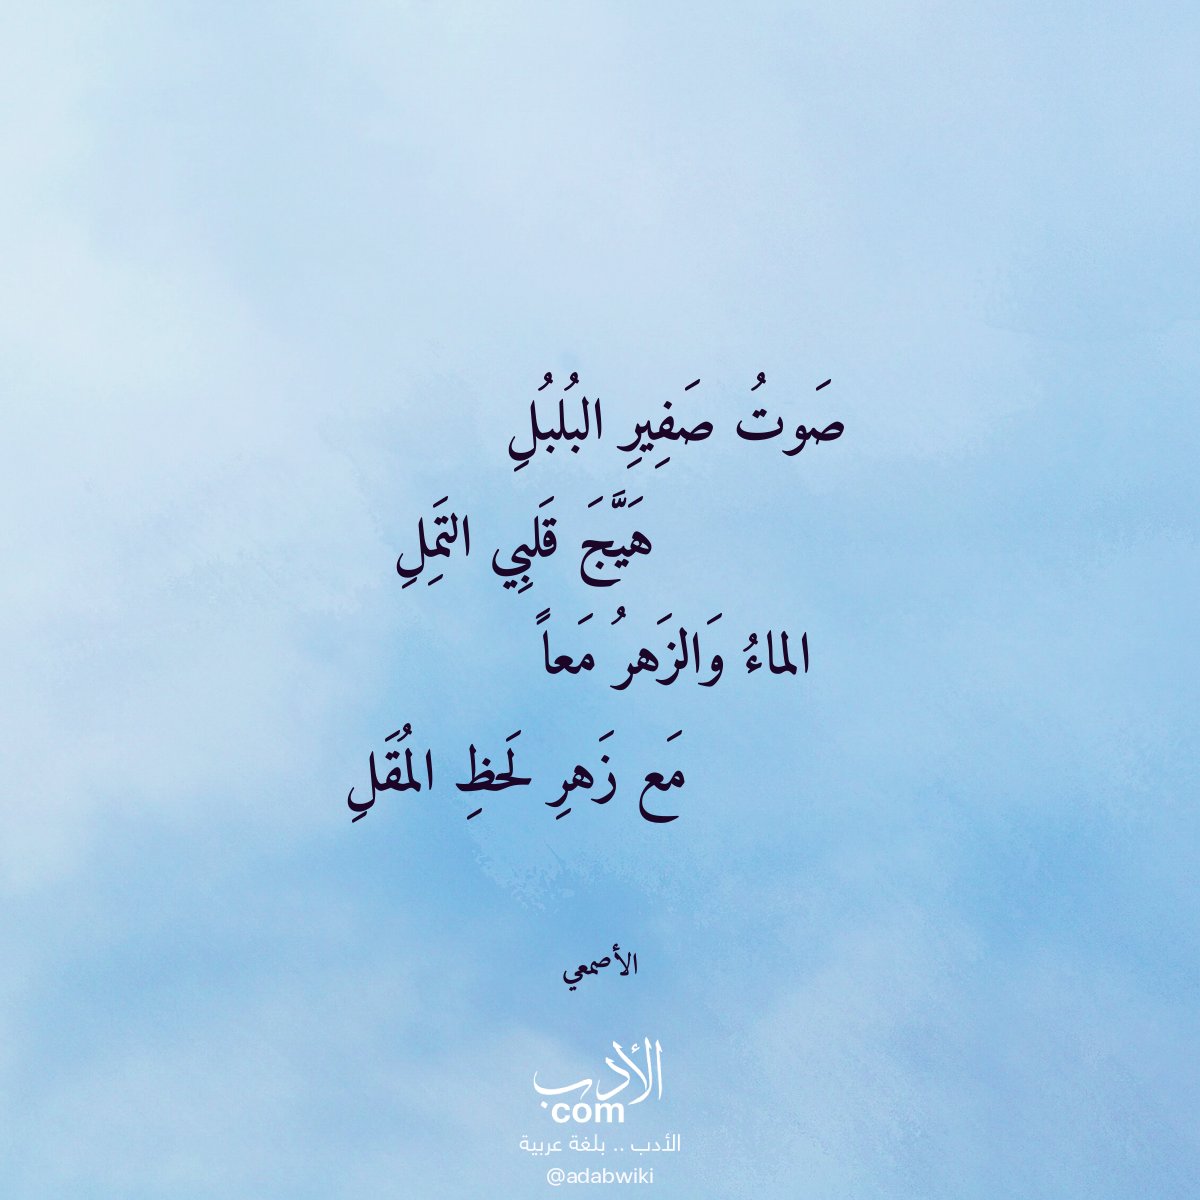 صَوتُ صَفِيرِ البُلبُلِ
هَيَّجَ قَلبِي التَمِلِ
الماءُ وَالزَهرُ مَعاً
مَع زَهرِ لَحظِ المُقَلِ
الأصمعي
الأدب
com
الأدب .. بلغة عربية
@adabwiki